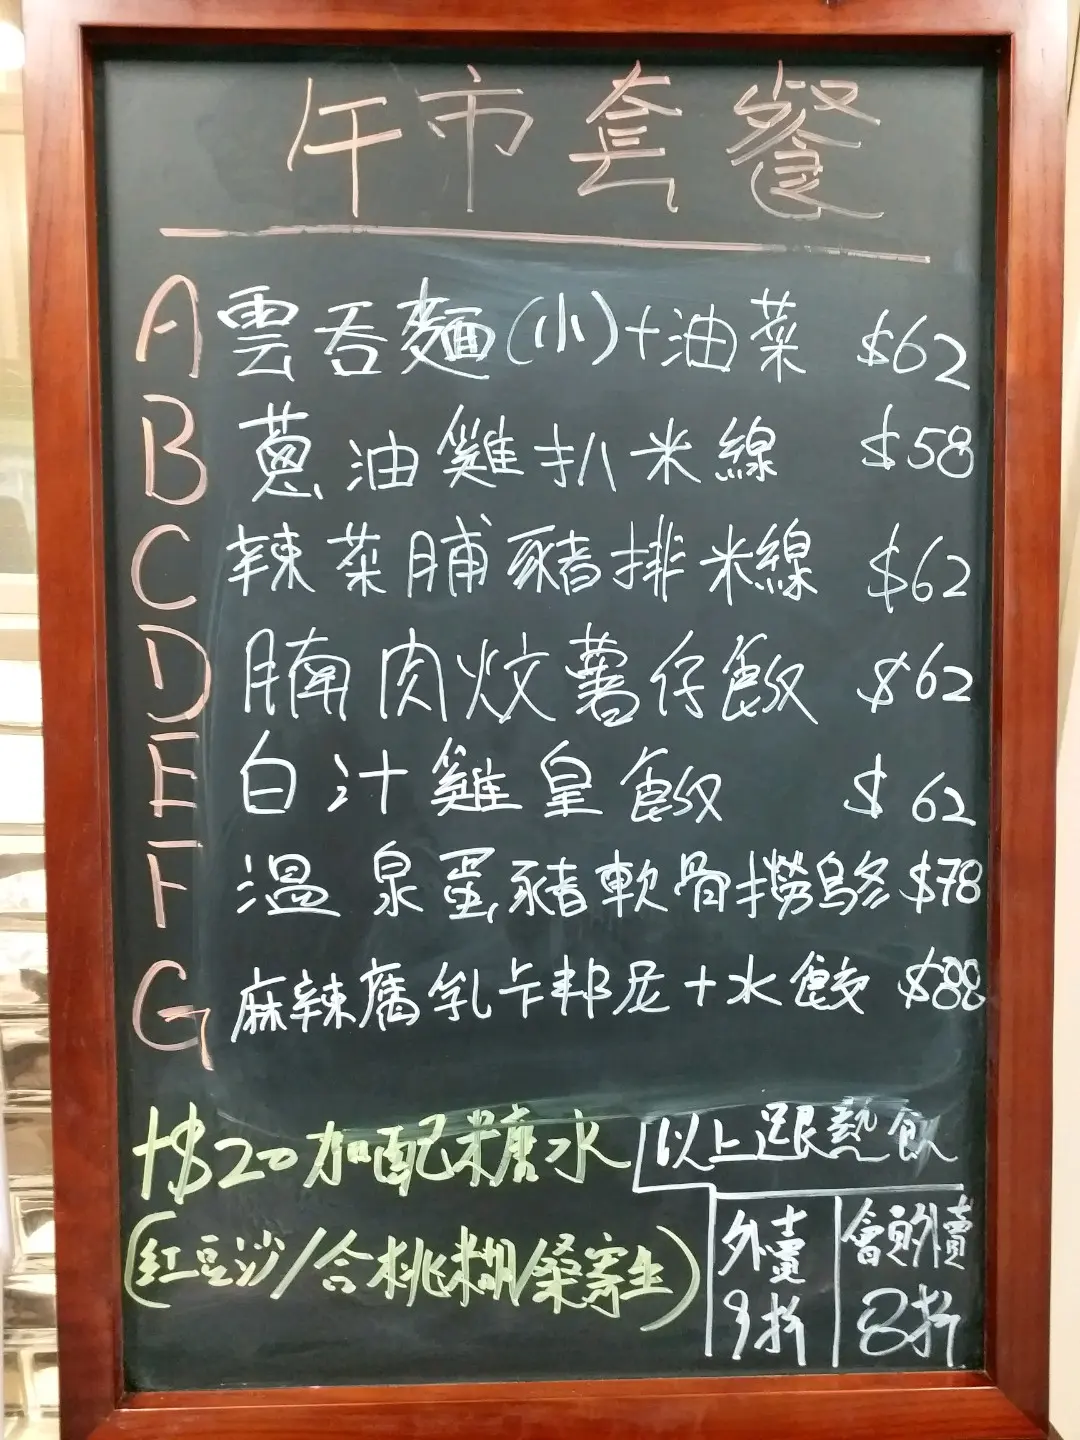 午市套餐
A 雲吞麵(小)+油菜 $62
B 蔥油雞扒米線 $58
C 辣菜脯豬排米線 $62
D 腩肉炆薯仔飯 $62
E 白汁雞皇飯 $62
F 溫泉蛋豬軟骨撈烏冬 $78
G 麻辣腐乳卡邦尼+水餃 $88
+$20加配糖水
以上跟熱飲
(紅豆沙/合桃糊/桑寄生)
外賣
9折
會員外賣
8折